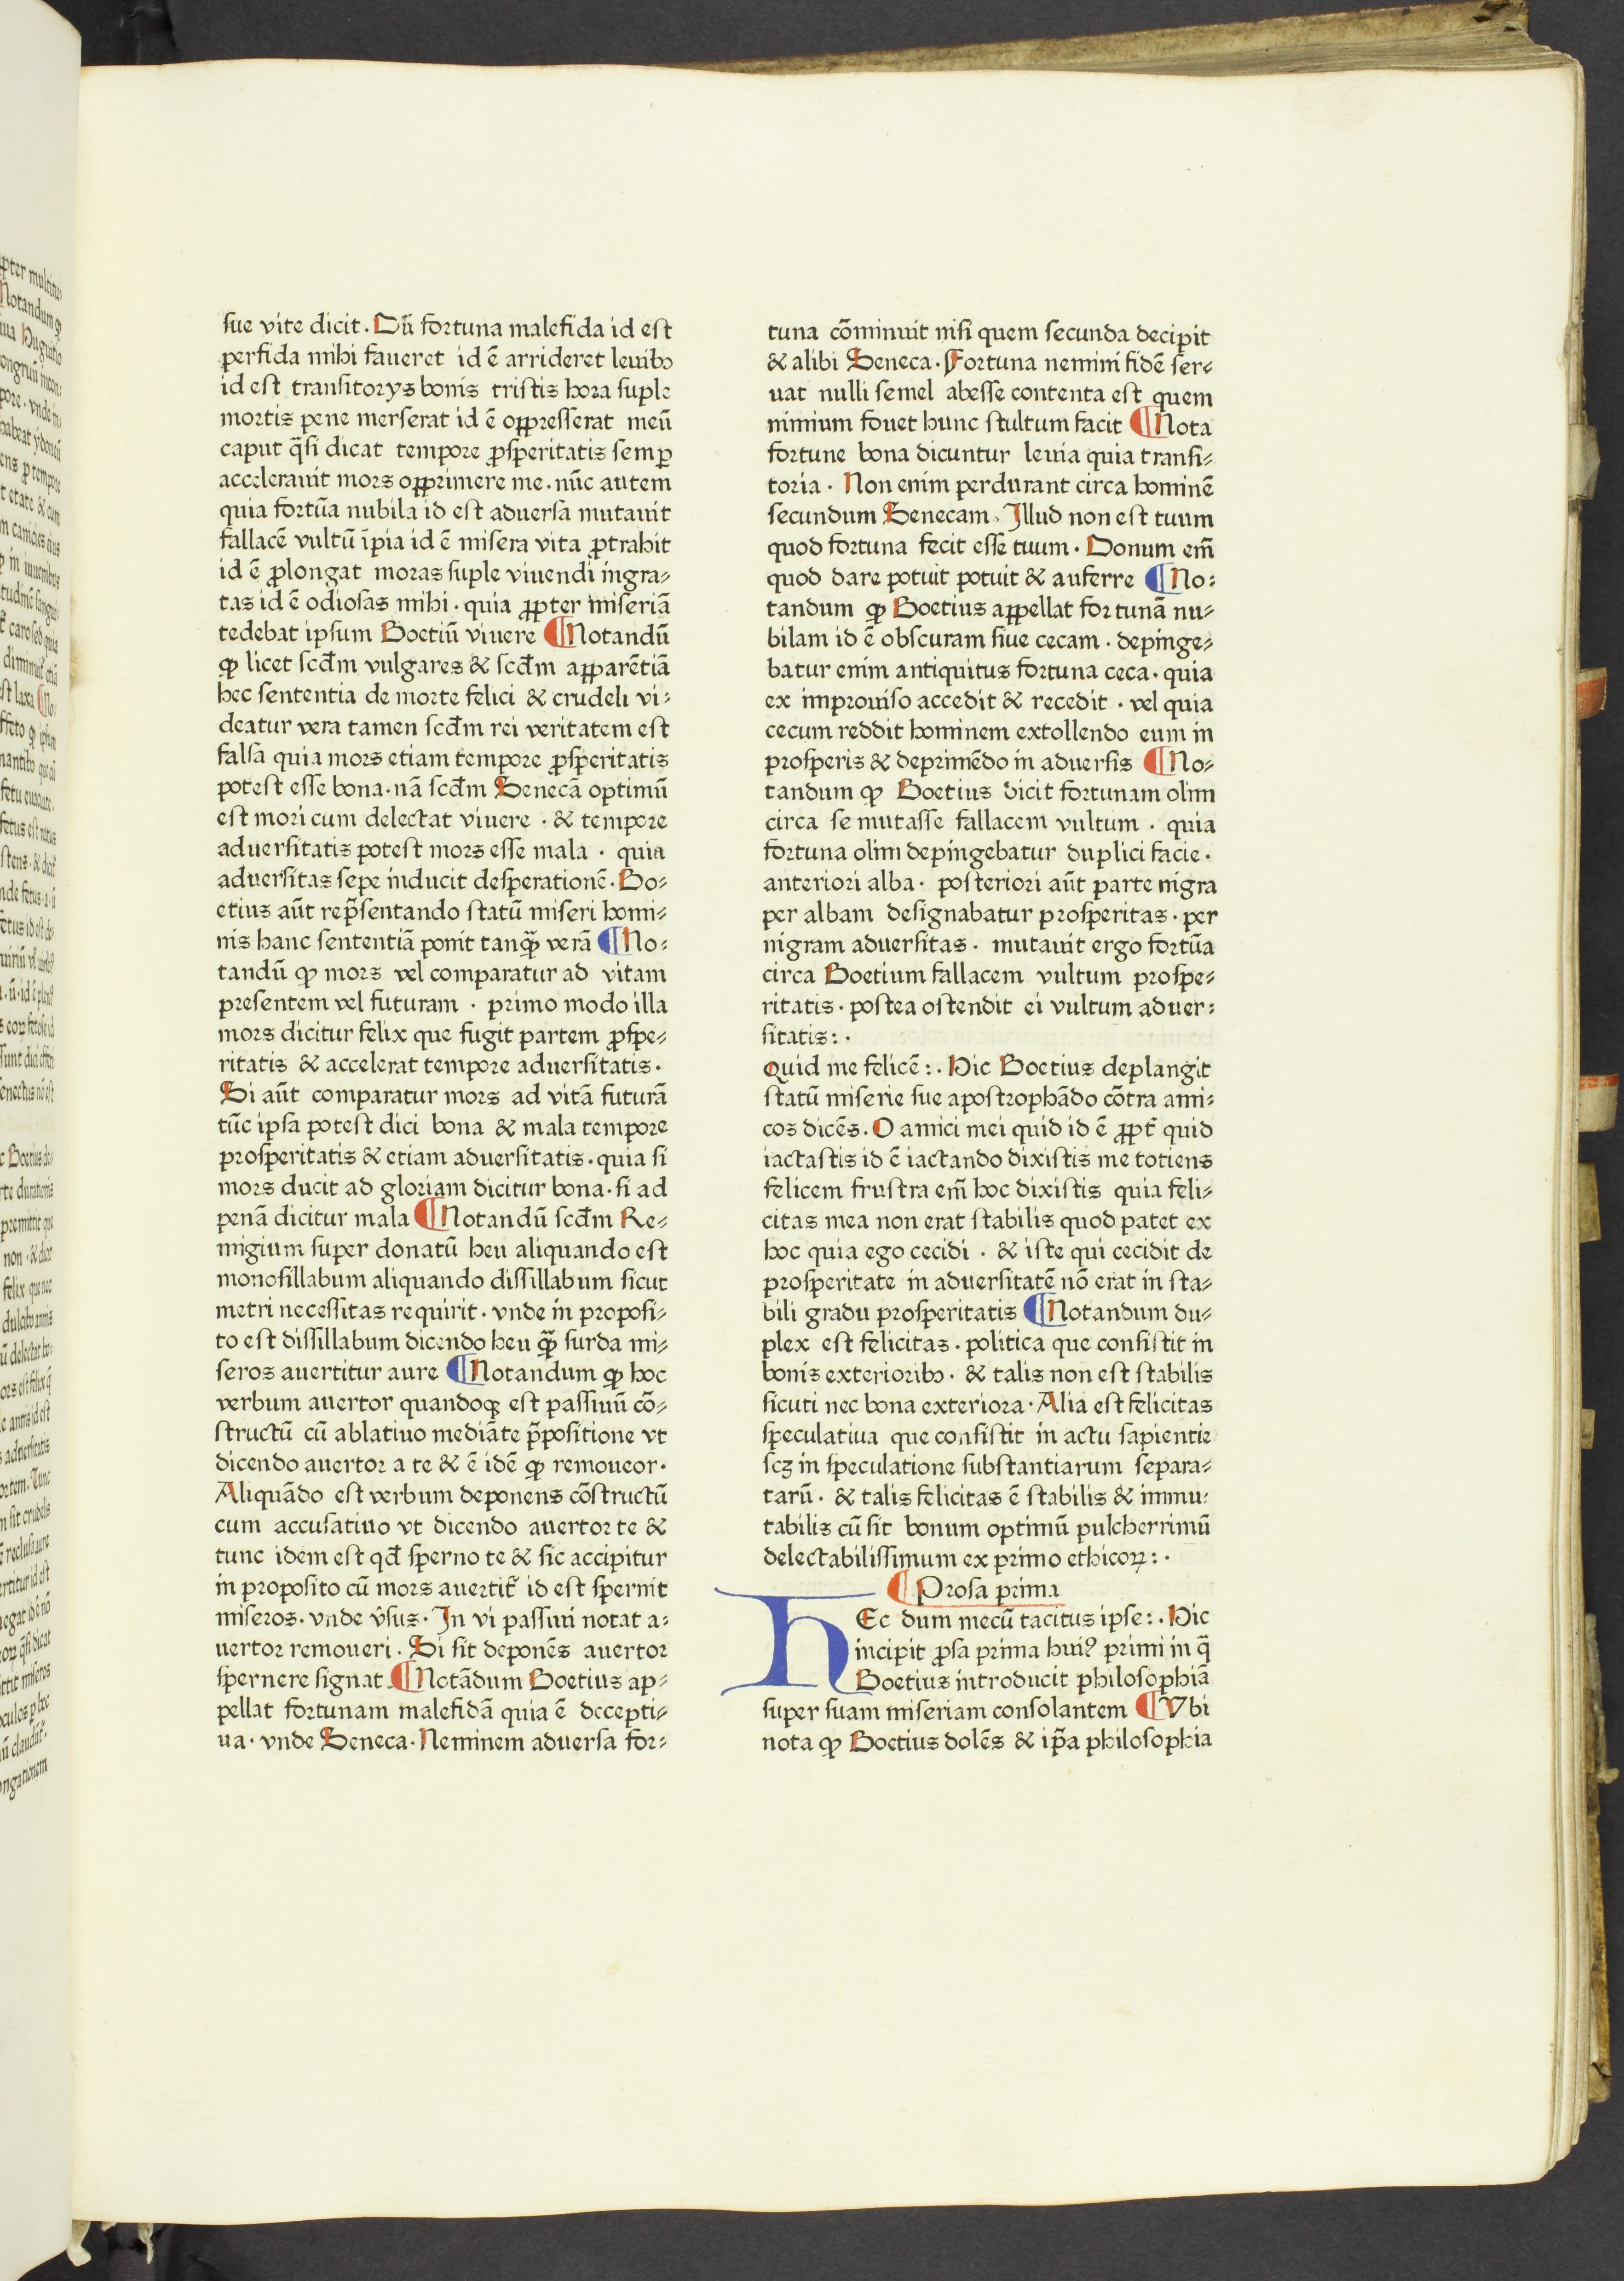 sue vite dicit. Dū fortuna malefida id est
perfida mihi faueret id ē arrideret leuibꝰ
id est transitorys bonis tristis hora suple
mortis pene merserat id ē oppresserat meū
caput q̄si dicat tempore ꝓsperitatis semꝑ
accelerauit mors opprimere me. nūc autem
quia fortūa nubila id est aduersa mutauit
fallacē vultū īpia id ē misera vita ꝓtrahit
id ē ꝓlongat moras suple viuendi ingra⸗
tas id ē odiosas mihi. quia ꝓpter miseriā
tedebat ipsum Boetiū viuere ¶Notandū
ꝙ licet scd̄m vulgares & scd̄m apparētiā
hec sententia de morte felici & crudeli vi⸗
deatur vera tamen scd̄m rei veritatem est
falsa quia mors etiam tempore ꝓsperitatis
potest esse bona. nā scd̄m Senecā optimū
est mori cum delectat viuere. & tempore
aduersitatis potest mors esse mala. quia
aduersitas sepe inducit desperationē. Bo⸗
etius aūt rep̄sentando statū miseri homi⸗
nis hanc sententiā ponit tanꝙ̄ verā ¶No⸗
tandū ꝙ mors vel comparatur ad vitam
presentem vel futuram. primo modo illa
mors dicitur felix que fugit partem ꝓspe⸗
ritatis & accelerat tempore aduersitatis.
Si aūt comparatur mors ad vitā futurā
tūc ipsa potest dici bona & mala tempore
prosperitatis & etiam aduersitatis. quia si
mors ducit ad gloriam dicitur bona. si ad
penā dicitur mala ¶Notandū scd̄m Re⸗
migium super donatū heu aliquando est
monosillabum aliquando dissillabum sicut
metri necessitas requirit. vnde in proposi⸗
to est dissillabum dicendo heu ꝙ̄ surda mi⸗
seros auertitur aure ¶Notandum ꝙ hoc
verbum auertor quandoqꝫ est passiuū cō⸗
structū cū ablatiuo mediāte p̄positione vt
dicendo auertor a te & ē idē ꝙ remoueor.
Aliquādo est verbum deponens cōstructū
cum accusatiuo vt dicendo auertor te &
tunc idem est qd̄ sperno te & sic accipitur
in proposito cū mors auertit̄ id est spernit
miseros. vnde v̄sus. In vi passiui notat a⸗
uertor remoueri. Si sit deponēs auertor
spernere signat. ¶Notādum Boetius ap⸗
pellat fortunam malefidā quia ē decepti⸗
ua. vnde Seneca. Neminem aduersa for⸗
tuna cōminuit nisi quem secunda decipit
& alibi Seneca. Fortuna nemini fidē ser⸗
uat nulli semel abesse contenta est quem
nimium fouet hunc stultum facit ¶Nota
fortune bona dicuntur leuia quia transi⸗
toria. Non enim perdurant circa hominē
secundum Senecam. Illud non est tuum
quod fortuna fecit esse tuum. Donum em̄
quod dare potuit potuit & auferre ¶No⸗
tandum ꝙ Boetius appellat fortunā nu⸗
bilam id ē obscuram siue cecam. depinge⸗
batur enim antiquitus fortuna ceca. quia
ex improuiso accedit & recedit. vel quia
cecum reddit hominem extollendo eum in
prosperis & deprimēdo in aduersis ¶No⸗
tandum ꝙ Boetius dicit fortunam olim
circa se mutasse fallacem vultum. quia
fortuna olim depingebatur duplici facie.
anteriori alba. posteriori aūt parte nigra
per albam designabatur prosperitas. per
nigram aduersitas. mutauit ergo fortūa
circa Boetium fallacem vultum prospe⸗
ritatis. postea ostendit ei vultum aduer⸗
sitatis:.
Quid me felicē:. Hic Boetius deplangit
statū miserie sue apostrophādo cōtra ami⸗
cos dicēs. O amici mei quid id ē ꝓpt̄ quid
iactastis id ē iactando dixistis me totiens
felicem frustra em̄ hoc dixistis quia feli⸗
citas mea non erat stabilis quod patet ex
hoc quia ego cecidi. & iste qui cecidit de
prosperitate in aduersitatē nō erat in sta⸗
bili gradu prosperitatis ¶Notandum du⸗
plex est felicitas. politica que consistit in
bonis exterioribꝰ. & talis non est stabilis
sicuti nec bona exteriora. Alia est felicitas
speculatiua que consistit in actu sapientie
scꝫ in speculatione substantiarum separa⸗
tarū. & talis felicitas ē stabilis & immu⸗
tabilis cū sit bonum optimū pulcherrimū
delectabilissimum ex primo ethicoꝝ:.
¶Prosa prima
HEc dum mecū tacitus ipse:. Hic
incipit ꝓsa prima huiꝰ primi in q̄
Boetius introducit philosophiā
super suam miseriam consolantem ¶Vbi
nota ꝙ Boetius dolēs & ip̄a philosophia